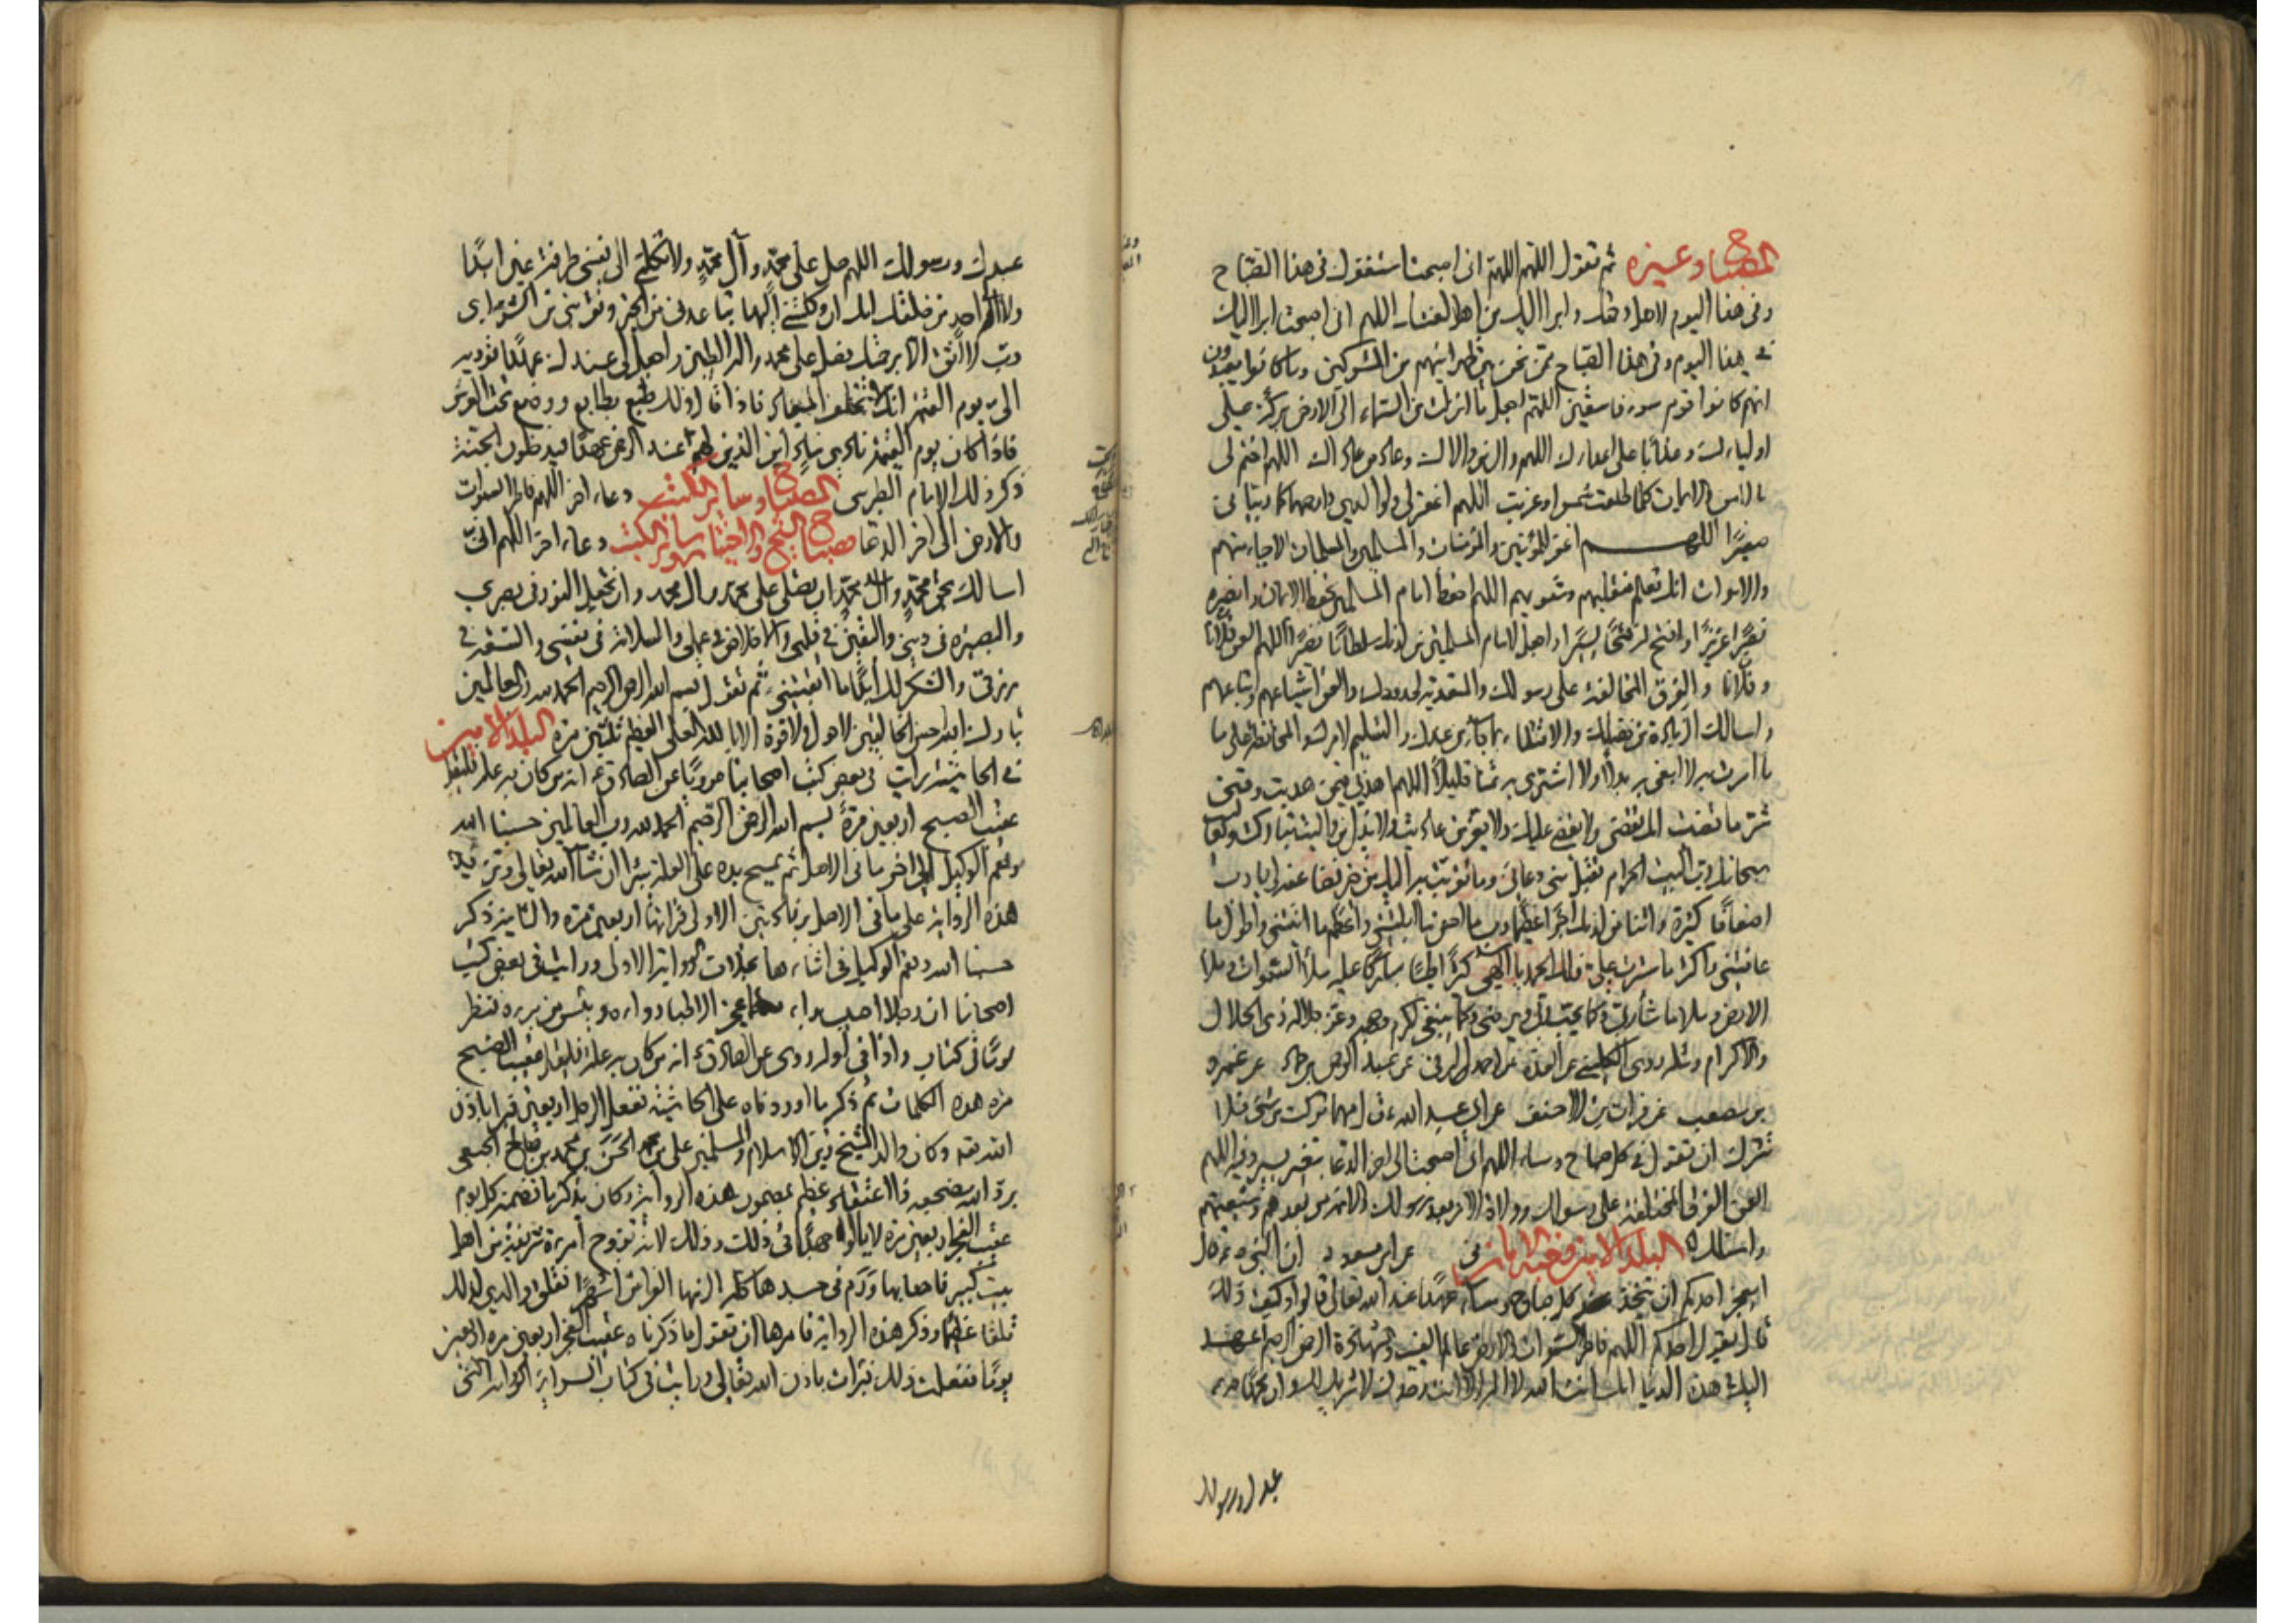 المصباح وغيره ثم تقول اللهم اللهم انى اصبحت استغفرك فى هذا الصباح
وفى هذا اليوم لاهل رحمتك وابرا اليك من اهل لعنتك اللهم انى اصبحت ابرا اليك
فى هذا اليوم وفى هذا الصباح ممن نحن بين ظهرانيهم من المشركين وما كانوا يعبدون
انهم كانوا قوم سوء فاسقين اللهم اجعل ما انزلت من السماء الى الارض بركة على
اوليائك وعذابا على اعدائك اللهم وال من والاك وعاد من عاداك اللهم اختم لى
بالامن والايمان كلما طلعت شمس او غربت اللهم اغفر لى ولوالدي وارحمهما كما ربيانى
صغيرا اللهم اغفر للمؤمنين والمؤمنات والمسلمين والمسلمات الاحياء منهم
والاموات انك تعلم منقلبهم ومثويهم اللهم احفظ امام المسلمين بحفظ الايمان وانصره
نصرا عزيزا وافتح له فتحا يسيرا واجعل لامام المسلمين من لدنك سلطانا نصيرا اللهم العن فلانا
وفلانا والفرق المخالفة على رسولك والمتعدية لحدودك والعن اشياعهم واتباعهم
واسالك الزيادة من فضلك والاقتداء بما جاء من عندك والتسليم لامرك والمحافظة على ما
ما امرت به لا ابغى به بدلا ولا اشترى به ثمنا قليلا اللهم اهدنى فيمن هديت وقنى
شر ما قضيت انك تقضى ولا يقضى عليك ولا يعز من عاديت ولا يذل من واليت تباركت وتعاليت
سبحانك رب البيت الحرام تقبل منى دعائى وما تقربت به اليك من خير فضاعفه لى يا رب
اضعافا كثيرة واتنا من لدنك اجرا عظيما رب ما احسن ما ابليتنى واعظم ما اتيتنى واطول ما
عافيتنى واكثر ما سترت على فلك الحمد يا الهى كثيرا طيبا مباركا عليه ملأ السموات وملأ
الارض وملأ ما شاء ربى وكما يحب ربى ويرضى وكما ينبغى لكرم وجهه وعز جلاله ذى الجلال
والاكرام ومثله روى الكلينى عن العدة عن احمد البرقى عن عبد الرحمن بن حماد عن عمرو
بن مصعب عن فرات بن الاحنف عن ابى عبد الله ع قال مهما تركت من شئ فلا
تترك ان تقول فى كل صباح ومساء اللهم انى اصبحت الى اخر الدعا بتغيير يسير وفيه اللهم
العن الفرق المختلفة على رسولك وولاة الامر بعد رسولك والائمة من بعدهم وشيعتهم
واسالك البلد الامين وجنة الامان عن ابن مسعود ان النبى ص قال
ايعجز احدكم ان يتخذ كل صباح ومساء عهدا عند الله تعالى قالوا وكيف ذلك
قال يقول احدكم اللهم فاطر السموات والارض عالم الغيب والشهادة الرحمن الرحيم اعهد
اليك فى هذه الدنيا انك انت الله لا اله الا انت وحدك لا شريك لك وان محمدا ص
عبدك ورسولك
عبدك ورسولك اللهم صل على محمد وآل محمد ولا تكلنى الى نفسى طرفة عين ابدا
ولا الى احد من خلقك انك ان وكلتنى اليها تباعدنى من الخير وتقربنى من الشر اى
رب لا اثق الا برحمتك فصل على محمد واله الطيبين واجعل لى عندك عهدا تؤديه
الى يوم القيمة انك لا تخلف الميعاد فاذا قال ذلك طبع بطابع ووضع تحت العرش
فاذا كان يوم القيمة نادى مناد اين الذين لهم عند الرحمن عهدا فيدخلون الجنة
ذكر ذلك الامام الطبرسى المصباح وسائر الكتب دعاء اخر اللهم فاطر السموات
والارض الى اخر الدعا مصباح الشيخ والاختيار وسائر الكتب دعاء اخر اللهم انى
اسالك بحق محمد وآل محمد ان تصلى على محمد وال محمد وان تجعل النور فى بصرى
والبصيرة فى دينى واليقين فى قلبى والاخلاص فى عملى والسلامة فى نفسى والسعة فى
رزقى والشكر لك ابدا ما ابقيتنى ثم تقول بسم الله الرحمن الرحيم الحمد لله رب العالمين
تبارك الله احسن الخالقين لا حول ولا قوة الا بالله العلى العظيم ثلثين مرة البلد الامين
فى الحاشية رايت فى بعض كتب اصحابنا مرويا عن الصادق ع انه من كان به علة فليقل
عقيب الصبح اربعين مرة بسم الله الرحمن الرحيم الحمد لله رب العالمين حسبنا الله
ونعم الوكيل الى اخر ما فى الاصل ثم يمسح يده على العلة يبرا ان شاء الله تعالى
هذه الرواية على ما فى الاصل بزيادتين الاولى قرائتها اربعين مرة والثانية ذكر
حسبنا الله ونعم الوكيل فى اثنائها بخلاف الرواية الاولى ورايت فى بعض كتب
اصحابنا ان رجلا اصيب بداء اعجز الاطباء دواءه ويئس من برءه فنظر
يوما فى كتاب واذا فى اوله روى عن الصادق ع انه من كان به علة فليقل عقيب الصبح
مرة هذه الكلمات ثم ذكر ما اوردناه على الحاشية ففعل الرجل اربعين فبرا باذن
الله تعه وكان والد الشيخ زين الاسلام والمسلمين على بن الحسن بن محمد بن صالح الجبعى
برد الله مضجعه ذا اعتقاد عظيم بمضمون هذه الرواية وكان يذكر ما تضمنه كل يوم
عقيب الفجر اربعين مرة لا يالوا جهدا فى ذلك وذلك لانه تزوج امرءة شريفة من اهل
بيت كبير فاصابها ورم فى جسدها كله الزمها الفراش اشهرا فقلق والدى لذلك
قلقا عظيما وذكر هذه الرواية فامرها ان تقول ما ذكرناه عقيب الفجر اربعين مرة اربعين
يوما ففعلت ذلك فبرات باذن الله تعالى ورايت فى كتاب